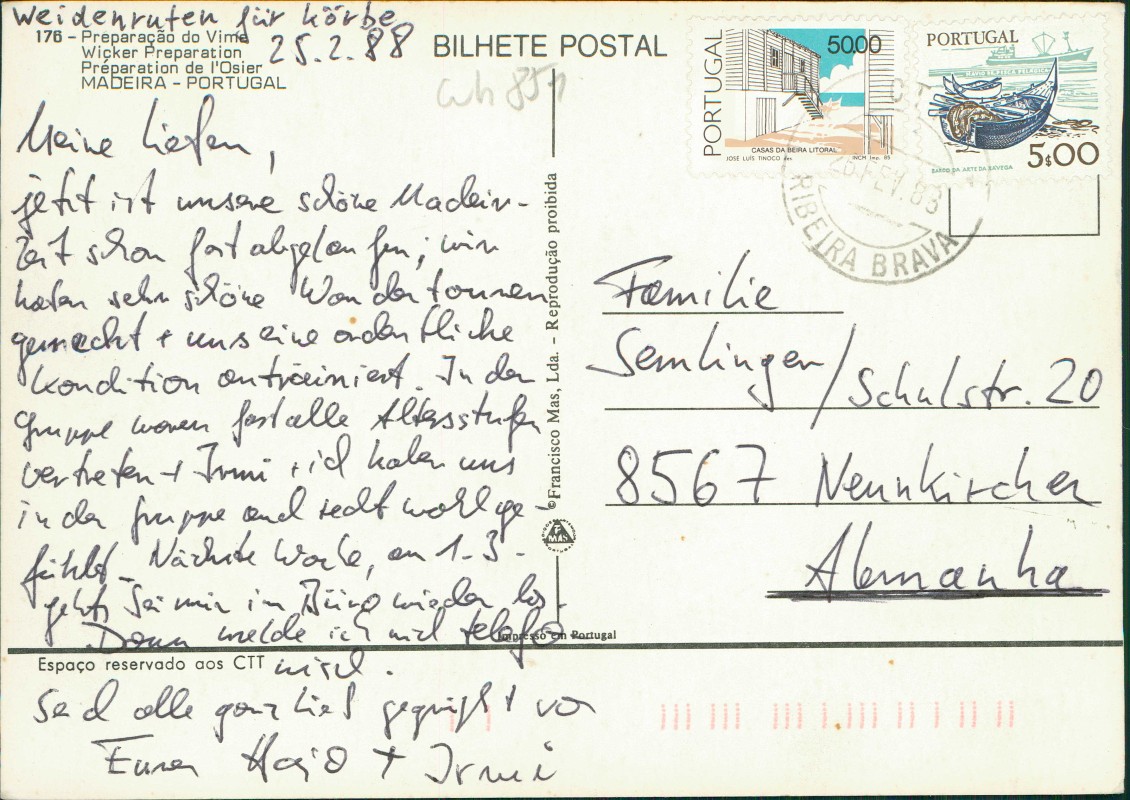 Weidenruten für Körbe
25.2.88
176 - Preparação do Vime
Wicker Preparation
Préparation de l'Osier
MADEIRA - PORTUGAL
BILHETE POSTAL
PORTUGAL
50.00
CASAS DA BEIRA LITORAL
JOSÉ LUÍS TINOCO des.
INCM Imp. 85
PORTUGAL
NAVIO DE PESCA PELÁGICA
5$00
BARCO DA ARTE DA XÁVEGA
FEV. 88
RIBEIRA BRAVA
Meine Lieben,
jetzt ist unsere schöne Madeira-
Zeit schon fast abgelaufen; wir
haben sehr schöne Wandertouren
gemacht + uns eine ordentliche
Kondition antrainiert. In der
Gruppe waren fast alle Altersstufen
vertreten + Irmi + ich haben uns
in der Gruppe auch recht wohl ge-
fühlt. Nächste Woche, am 1.3.
geht's bei mir im Büro wieder los.
Dann melde ich mich telefo-
nisch.
Seid alle ganz lieb gegrüßt von
Euren Hajo + Irmi
© Francisco Mas, Lda. - Reprodução proibida
MAS
Impresso em Portugal
Espaço reservado aos CTT
Familie
Semlinger / Schulstr. 20
8567 Neunkirchen
Alemanha